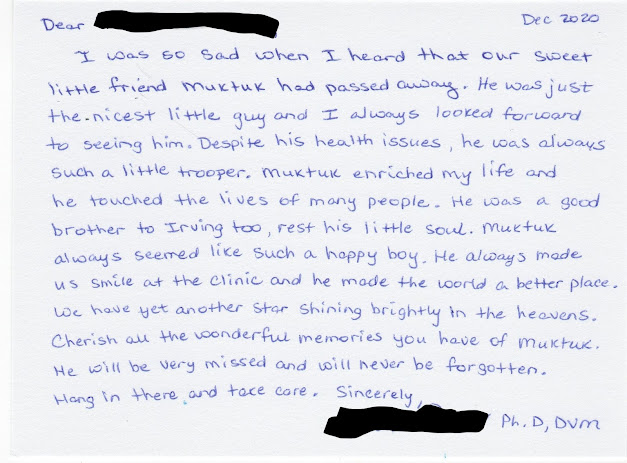 Dear
Dec 2020
I was so sad when I heard that our sweet
little friend Muktuk had passed away. He was just
the nicest little guy and I always looked forward
to seeing him. Despite his health issues, he was always
such a little trooper. Muktuk enriched my life and
he touched the lives of many people. He was a good
brother to Irving too, rest his little soul. Muktuk
always seemed like such a happy boy. He always made
us smile at the clinic and he made the world a better place.
We have yet another star shining brightly in the heavens.
Cherish all the wonderful memories you have of Muktuk.
He will be very missed and will never be forgotten.
Hang in there and take care. Sincerely,
Ph.D, DVM